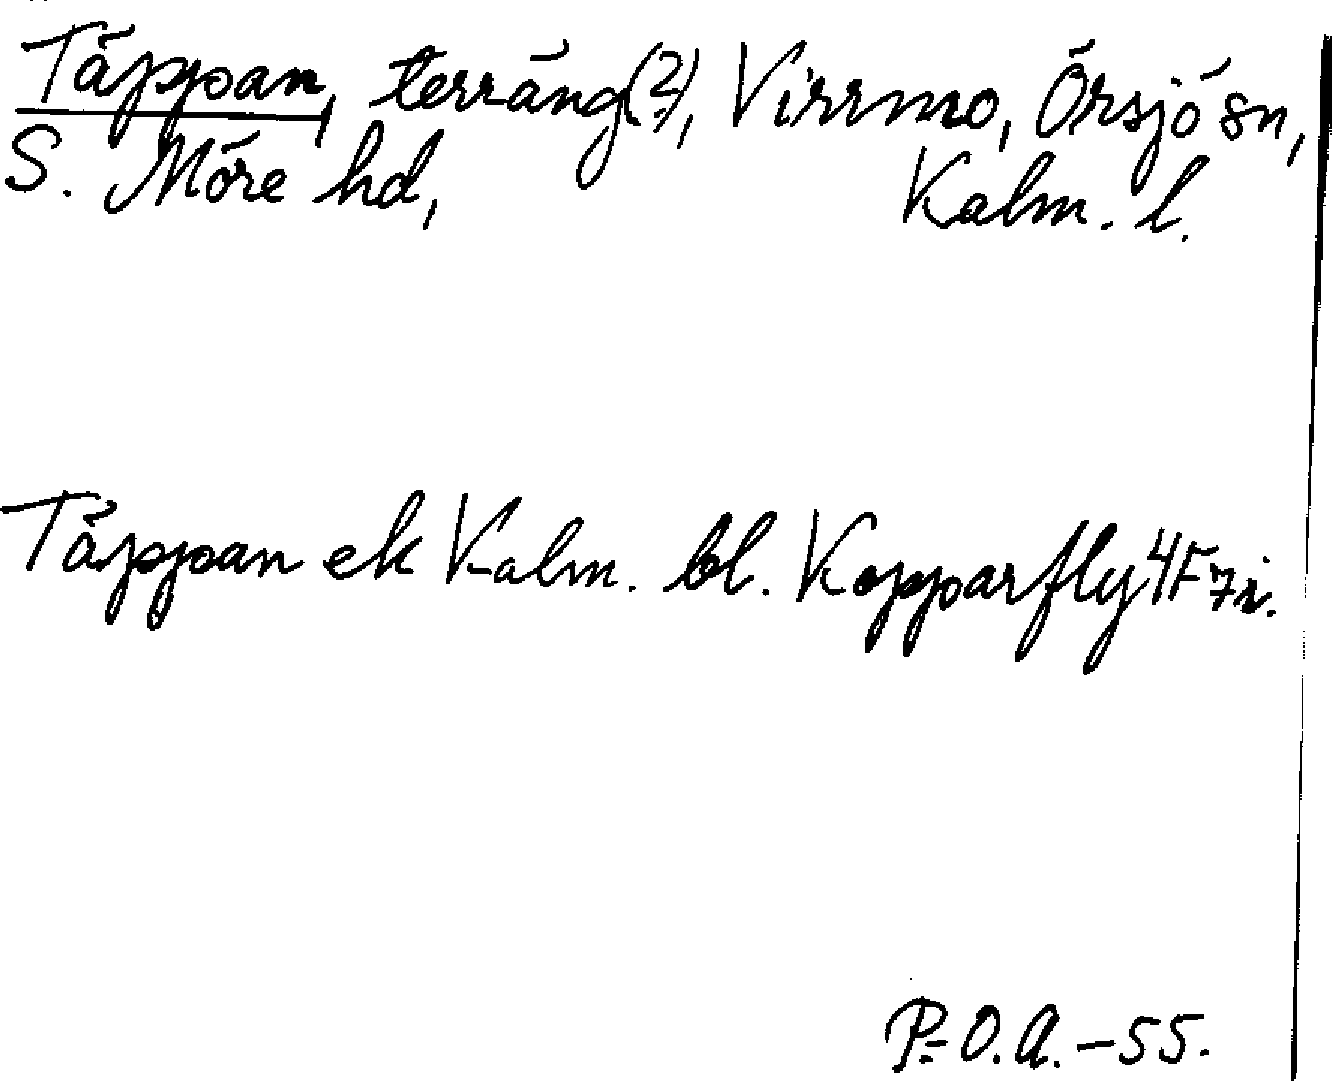 Täppan, terräng(?), Virrmo, Örsjö sn,
S. Möre hd, Kalm. l.
Täppan ek Kalm. bl. Kopparfly 4F7i.
P-O.A.-55.